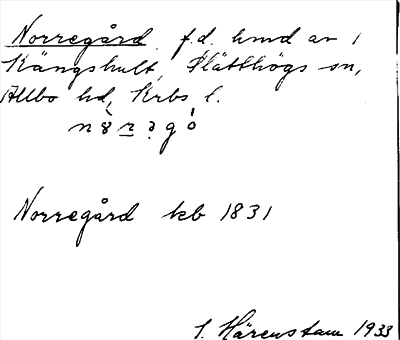 Norregård, f.d. hmd av 1
Kängshult, Slätthögs sn,
Allbo hd, Krbs l.
Norregård kb 1831
S. Härenstam 1933